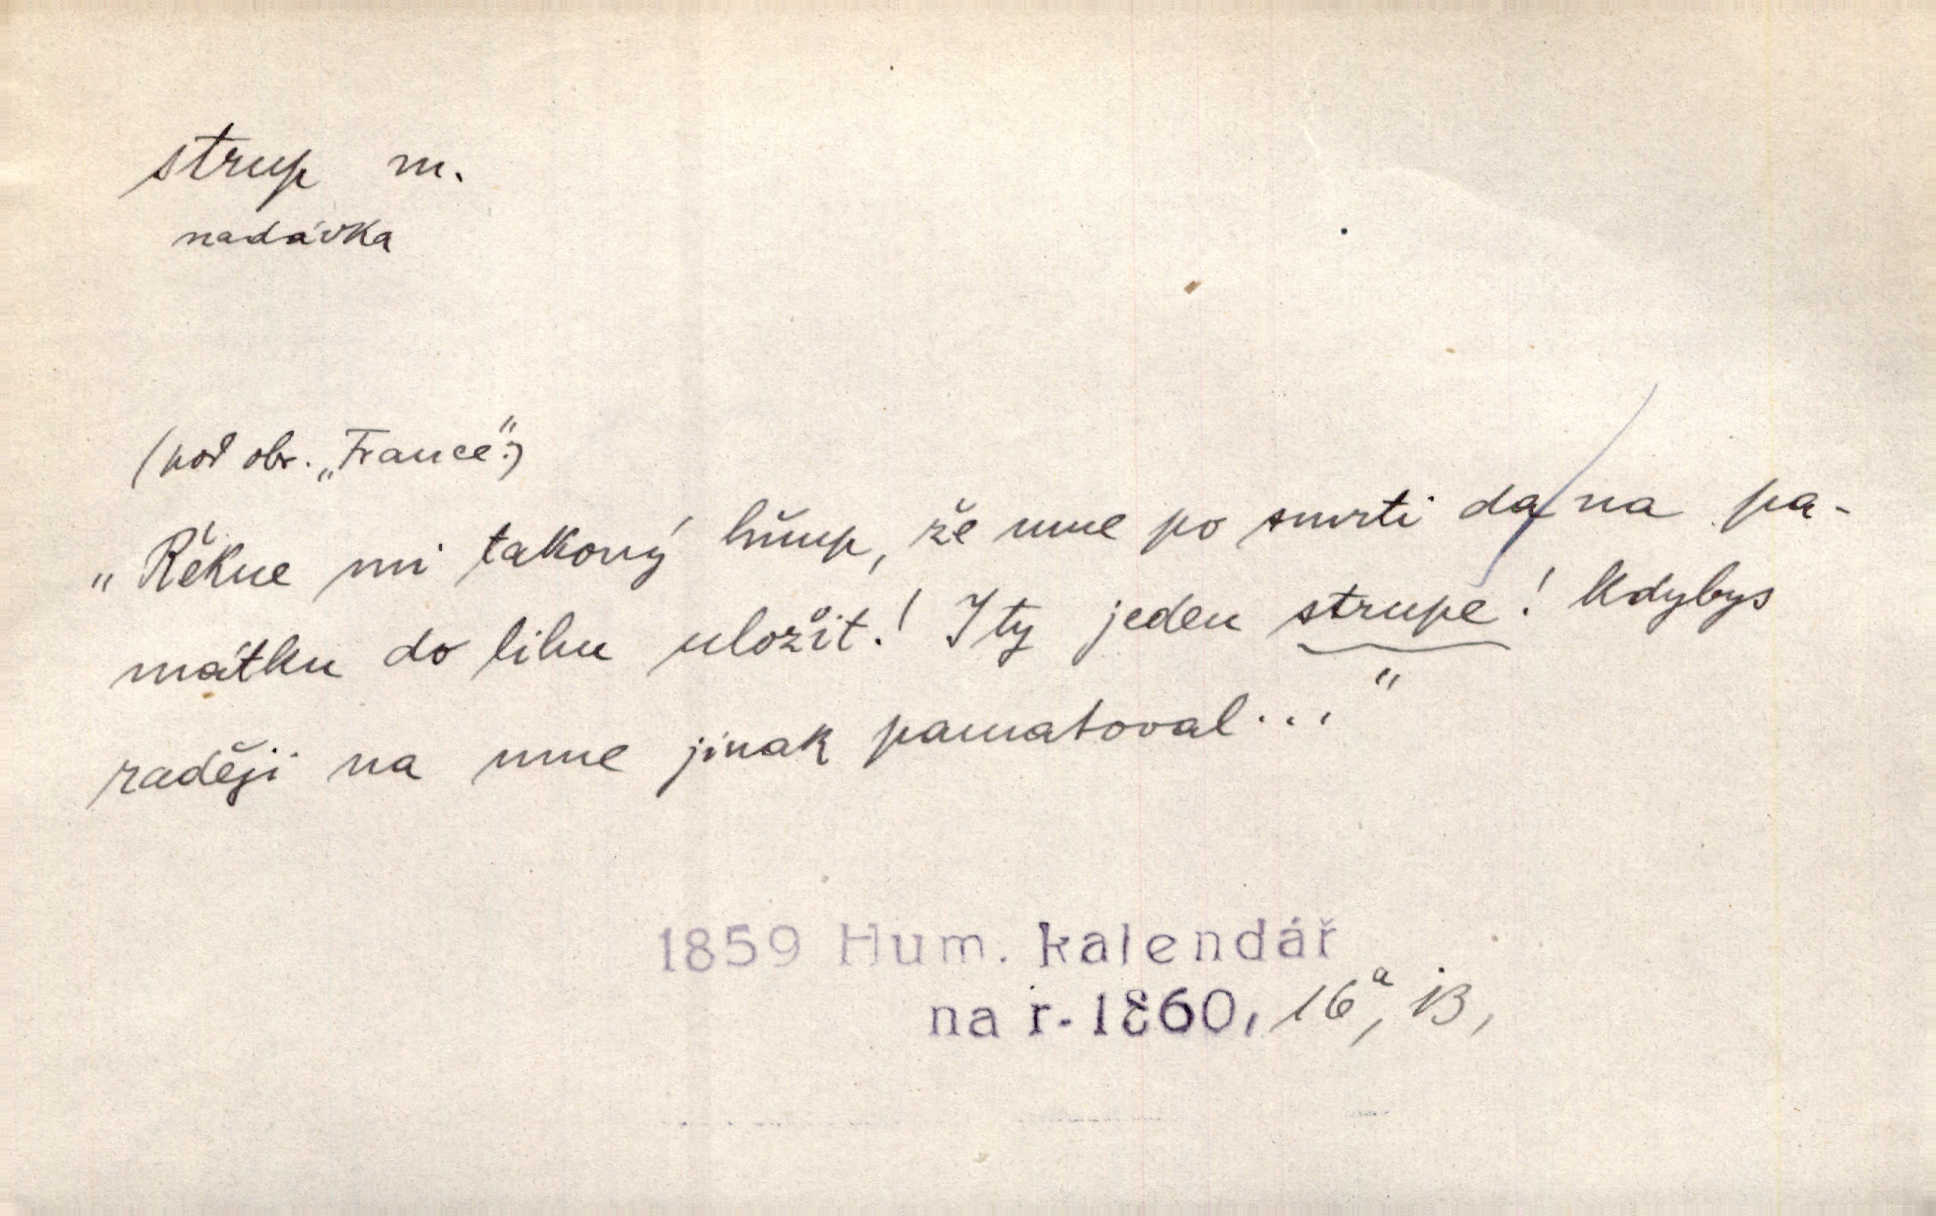 strup m.
nadávka
(pod obr. „France“:)
„Řekne mi takový hňup, že mne po smrti dá na pa-
mátku do lihu uložit! I ty jeden strupe! Kdybys
raději na mne jinak pamatoval..."
1859 Hum. kalendář
na r. 1860, 16a, B,